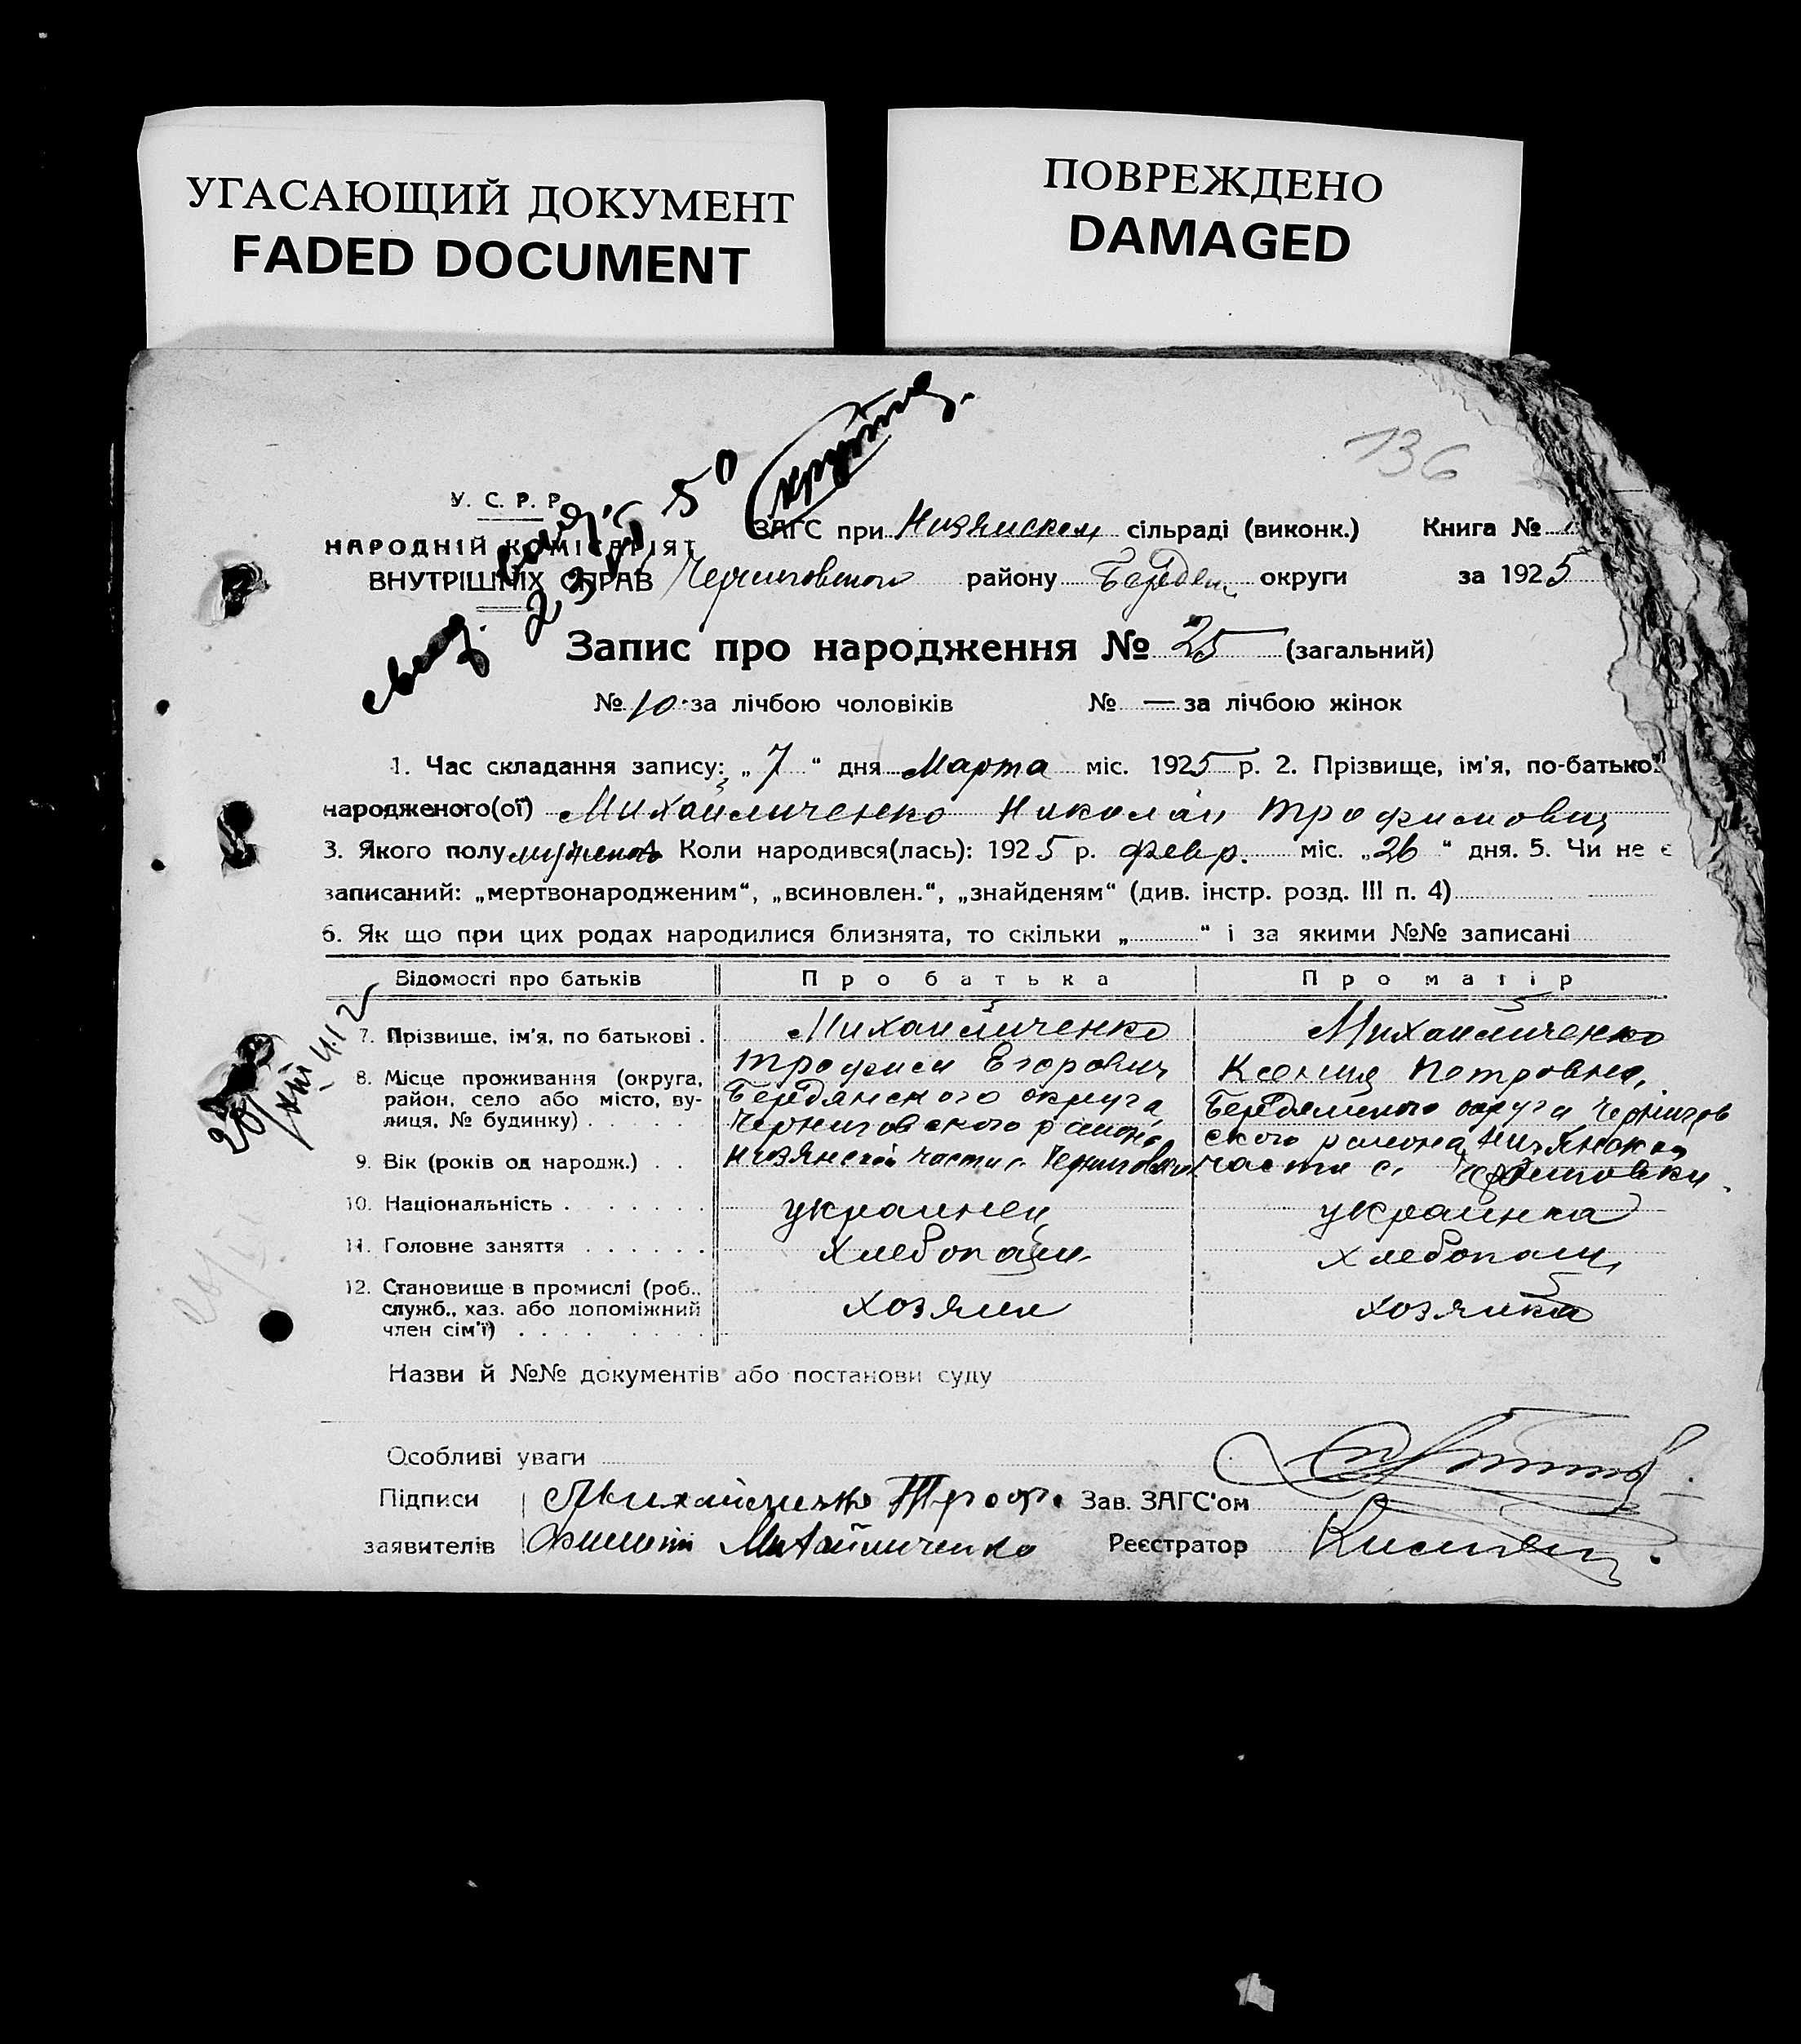 УГАСАЮЩИЙ ДОКУМЕНТ
FADED DOCUMENT
ПОВРЕЖДЕНО
DAMAGED
136
У. С. Р. Р.
НАРОДНІЙ КОМІСАРІЯТ
ВНУТРІШНІХ СПРАВ
50
ЗАГС при Низянском сільраді (виконк.) Книга №
Черниговского району Бердян. округи за 1925
Запис про народження № 25 (загальний)
№ 10 за лічбою чоловіків № — за лічбою жінок
1. Час складання запису: „ 7 “ дня Марта міс. 1925 р. 2. Прізвище, ім'я, по-батько.
народженого(ої) Михайличенко Николай Трофимович
3. Якого полу Коли народився(лась): 1925 р. февр. міс. „26“ дня. 5. Чи не є
записаний: „мертвонародженим“, „всиновлен.“, „знайденям“ (див. інстр. розд. III п. 4)
6. Як що при цих родах народилися близнята, то скільки „ “ і за якими №№ записані
Відомості про батьків Про батька Про матір
7. Прізвище, ім'я, по батькові . Михайличенко Михайличенко
Трофим Егорович Ксения Петровна,
8. Місце проживання (округа, район, село або місто, вулиця, № будинку) . . . . .
Бердянского округа Бердянского округа Чернигов
Черниговского района ского района Низянской
9. Вік (років од народж.) . . Низянской части с. Черниговки части с. Черниговки
10. Національність . . . . . . . украинец украинка
11. Головне заняття . . . . . . хлебопаш. хлебопаш.
12. Становище в промислі (роб.,
служб., хаз. або допоміжний хозяин хозяйка
член сім'ї) . . . . . . . .
Назви й №№ документів або постанови суду
Особливі уваги
Підписи Михайличенко Троф. Зав. ЗАГС'ом
заявителів Михайличенко Реєстратор